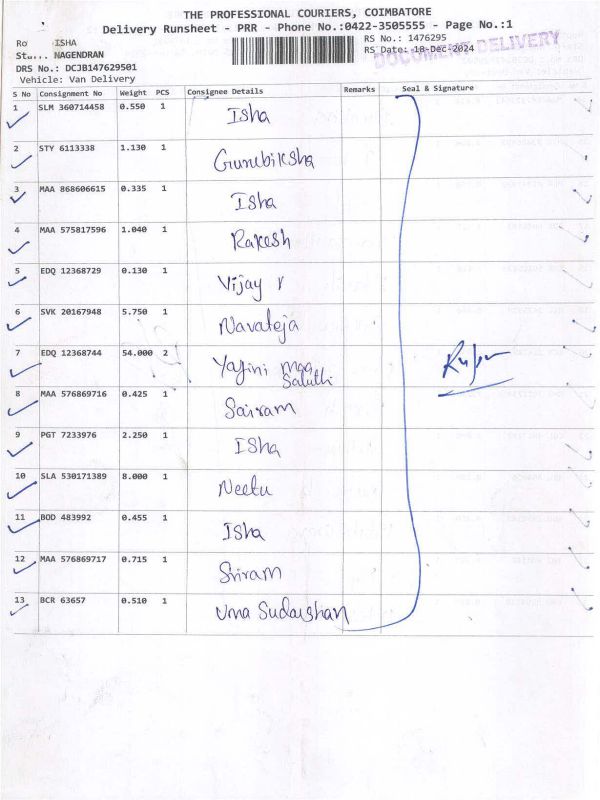 THE PROFESSIONAL COURIERS, COIMBATORE
Delivery Runsheet - PRR - Phone No.:0422-3505555 - Page No.:1
ISHA
RS No.: 1476295
NAGENDRAN
RS Date: 18-Dec-2024
DOCUMENT DELIVERY
DRS No.: DCJB147629501
Vehicle: Van Delivery
S No Consignment No Weight PCS Consignee Details Remarks Seal & Signature
1 SLM 360714458 0.550 1 Isha
2 STY 6113338 1.130 1
3 MAA 868606615 0.335 1 Isha
4 MAA 575817596 1.040 1 Rakesh
5 EDQ 12368729 0.130 1 Vijay V
6 SVK 20167948 5.750 1 Navateja
7 EDQ 12368744 54.000 2 Yajini maa
8 MAA 576869716 0.425 1 Sairam
9 PGT 7233976 2.250 1 Isha
10 SLA 530171389 8.000 1 Neetu
11 BOD 483992 0.455 1 Isha
12 MAA 576869717 0.715 1 Sriram
13 BCR 63657 0.510 1 Uma Sudarshan